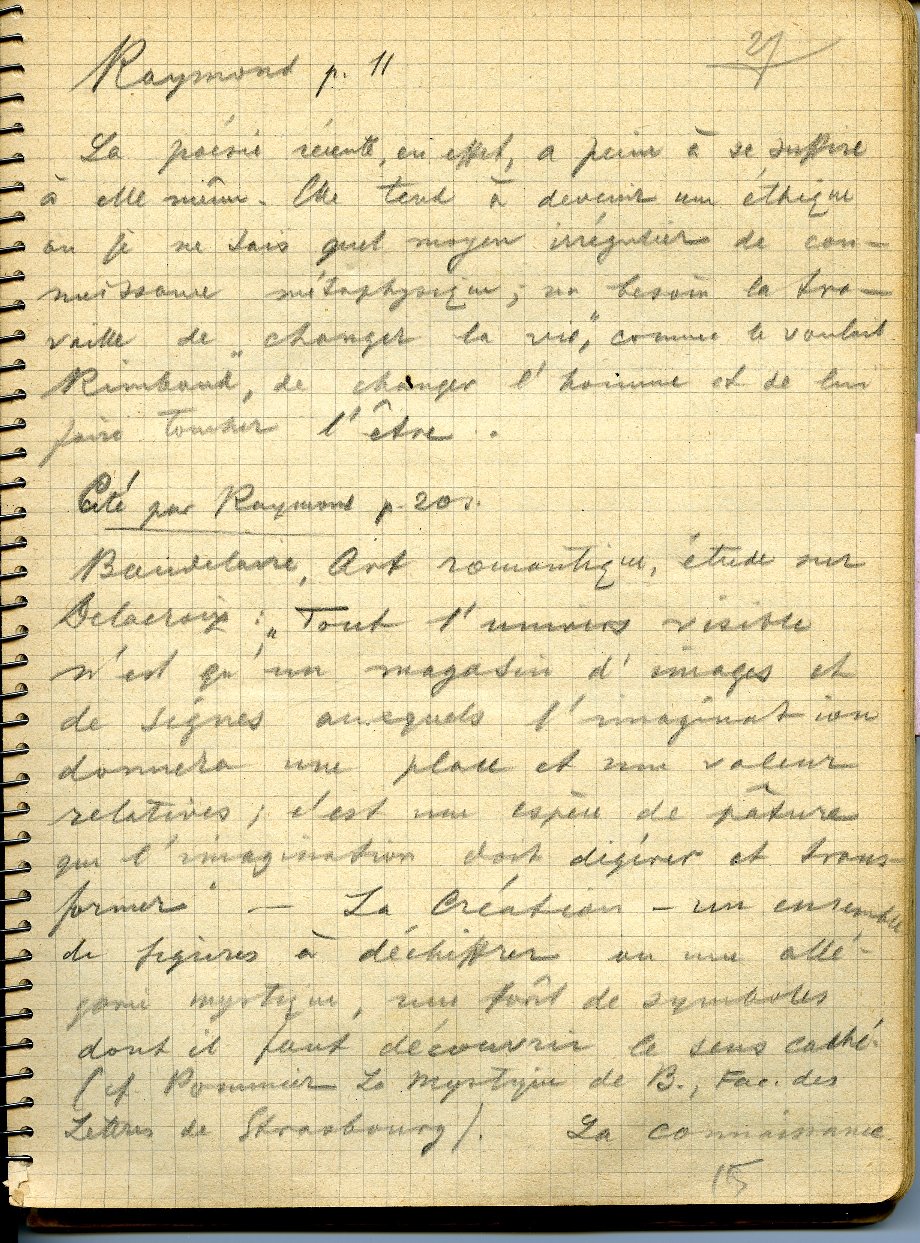 27
Raymond p. 11
La poésie récente, en effet, a peine à se suffire
à elle même. Elle tend à devenir une éthique
ou je ne sais quel moyen irrégulier de con-
naissance métaphysique; un besoin la tra-
vaille de "changer la vie", comme le voulait
Rimbaud, de changer l'homme et de lui
faire toucher l'être.
Cité par Raymond p. 20 s.
Baudelaire, Art romantique, étude sur
Delacroix: „Tout l'univers visible
n'est qu'un magasin d'images et
de signes auxquels l'imagination
donnera une place et une valeur
relatives; c'est une espèce de pâture
que l'imagination doit digérer et trans-
former" — La Création - un ensemble
de figures à déchiffrer ou une allé-
gorie mystique, une forêt de symboles
dont il faut découvrir le sens caché.
(cf Pommier La Mystique de B., Fac. des
Lettres de Strasbourg). La connaissance
15